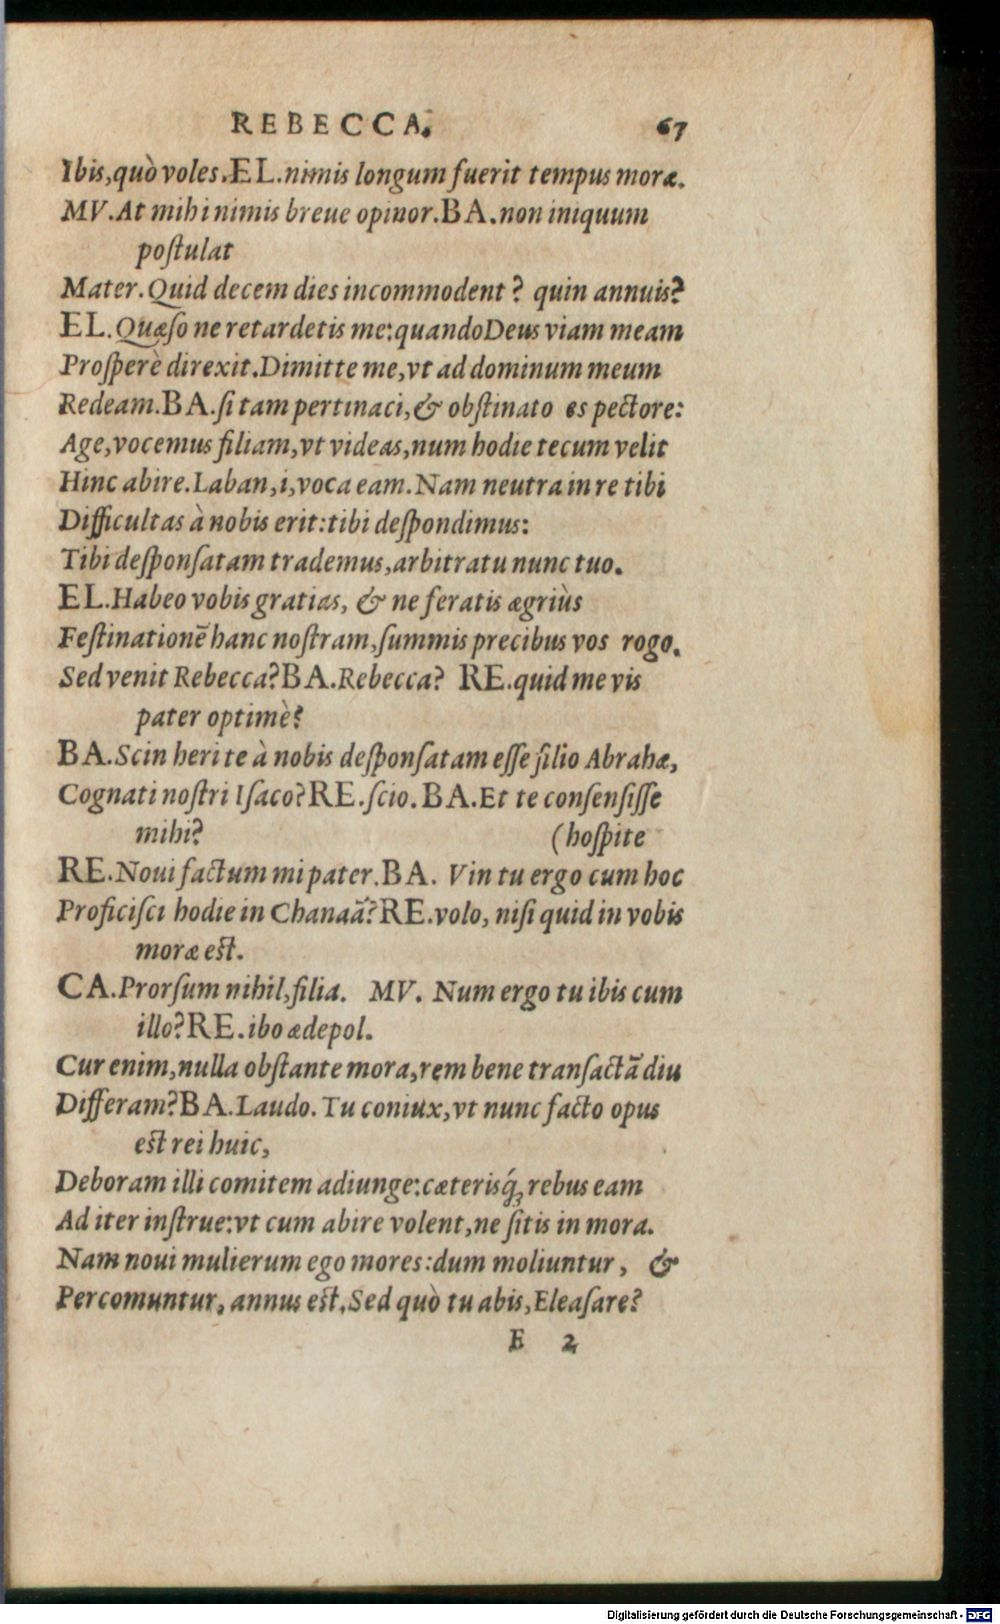 REBECCA. 67
Ibis,quò voles.EL.nimis longum fuerit tempus moræ.
MV.At mihi nimis breue opinor.BA.non iniquum
poſtulat
Mater.Quid decem dies incommodent? quin annuis?
EL.Quæſo ne retardetis me:quando Deus viam meam
Proſperè direxit.Dimitte me,vt ad dominum meum
Redeam.BA.ſi tam pertinaci,& obſtinato es pectore:
Age,vocemus filiam,vt videas,num hodie tecum velit
Hinc abire.Laban,i,voca eam.Nam neutra in re tibi
Difficultas à nobis erit:tibi deſpondimus:
Tibi deſponſatam trademus,arbitratu nunc tuo.
EL.Habeo vobis gratias, & ne feratis ægriùs
Feſtinationē hanc noſtram,ſummis precibus vos rogo.
Sed venit Rebecca?BA.Rebecca? RE.quid me vis
pater optimè?
BA.Scin heri te à nobis deſponſatam eſſe filio Abrahæ,
Cognati noſtri Iſaco?RE.ſcio.BA.Et te conſenſiſſe
mihi? (hoſpite
RE.Noui factum mi pater.BA. Vin tu ergo cum hoc
Proficiſci hodie in Chanaā?RE.volo, niſi quid in vobis
moræ eſt.
CA.Prorſum nihil,filia. MV. Num ergo tu ibis cum
illo?RE.ibo ædepol.
Cur enim,nulla obſtante mora,rem bene tranſactā diu
Differam?BA.Laudo.Tu coniux,vt nunc facto opus
eſt rei huic,
Deboram illi comitem adiunge:cæterisq́; rebus eam
Ad iter inſtrue:vt cum abire volent,ne ſitis in mora.
Nam noui mulierum ego mores:dum moliuntur, &
Percomuntur, annus eſt.Sed quò tu abis,Eleaſare?
E 2
Digitalisierung gefördert durch die Deutsche Forschungsgemeinschaft - DFG